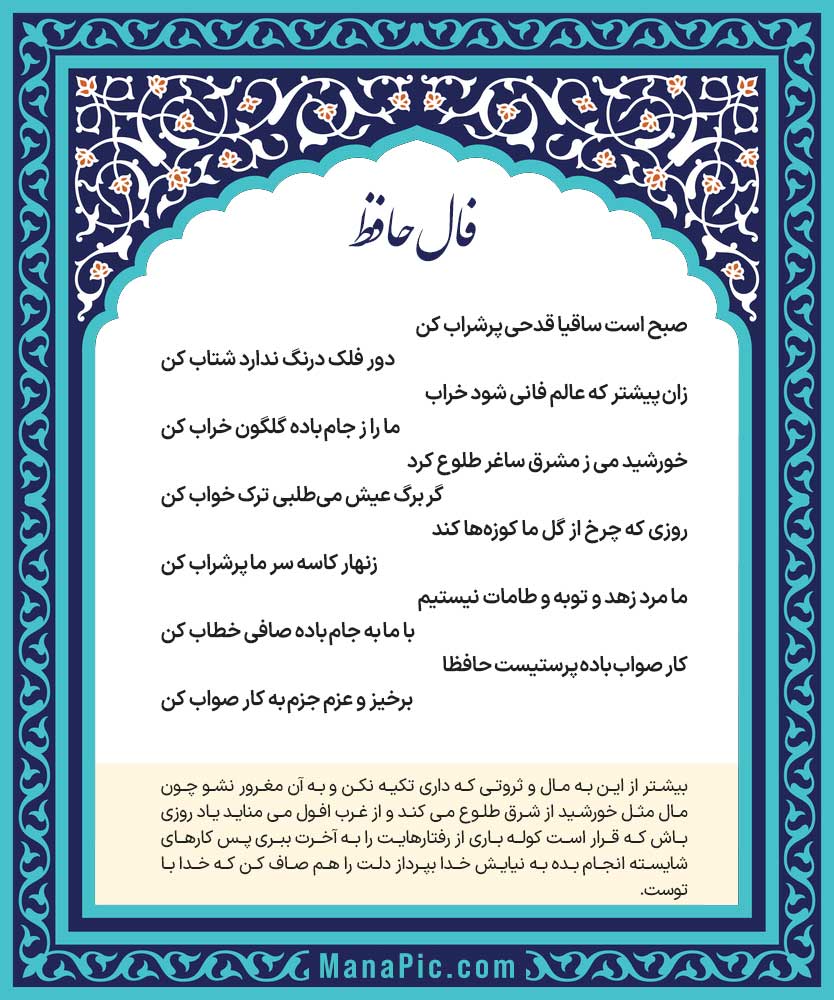 فال حافظ
صبح است ساقیا قدحی پرشراب کن
دور فلک درنگ ندارد شتاب کن
زان پیشتر که عالم فانی شود خراب
ما را ز جام باده گلگون خراب کن
خورشید می ز مشرق ساغر طلوع کرد
گر برگ عیش می‌طلبی ترک خواب کن
روزی که چرخ از گل ما کوزه‌ها کند
زنهار کاسه سر ما پرشراب کن
ما مرد زهد و توبه و طامات نیستیم
با ما به جام باده صافی خطاب کن
کار صواب باده پرستیست حافظا
برخیز و عزم جزم به کار صواب کن
بیشتر از این به مال و ثروتی که داری تکیه نکن و به آن مغرور نشو چون
مال مثل خورشید از شرق طلوع می کند و از غرب افول می نماید یاد روزی
باش که قرار است کوله باری از رفتارهایت را به آخرت ببری پس کارهای
شایسته انجام بده به نیایش خدا بپرداز دلت را هم صاف کن که خدا با
توست.
ManaPic.com